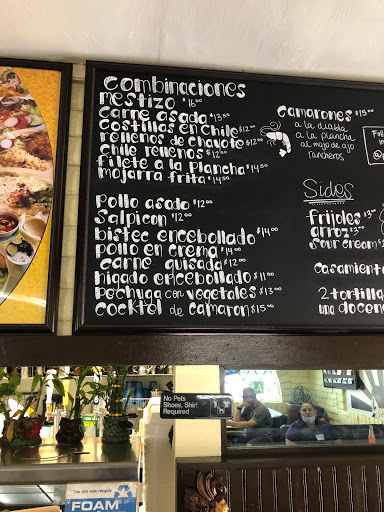 combinaciones
mestizo $16.00
carne asada $13.50
costillas en chile $12.00
rellenos de chayote $12.00
chile rellenos $12.00
filete a la plancha $14.50
mojarra frita $14.50
Pollo asado $12.00
Salpicon $12.00
bistec encebollado $14.00
pollo en crema $14.00
carne guisada $12.00
higado encebollado $11.00
pechuga con vegetales $13.00
cocktel de camaron $15.00
camarones $15.00
a la diabla
a la plancha
al mojo de ajo
rancheros
Sides
frijoles $3
arroz $3
sour cream $
casamiento
2 tortilla
una docen
No Pets
Shoes, Shirt
Required
You can now recycle
FOAM